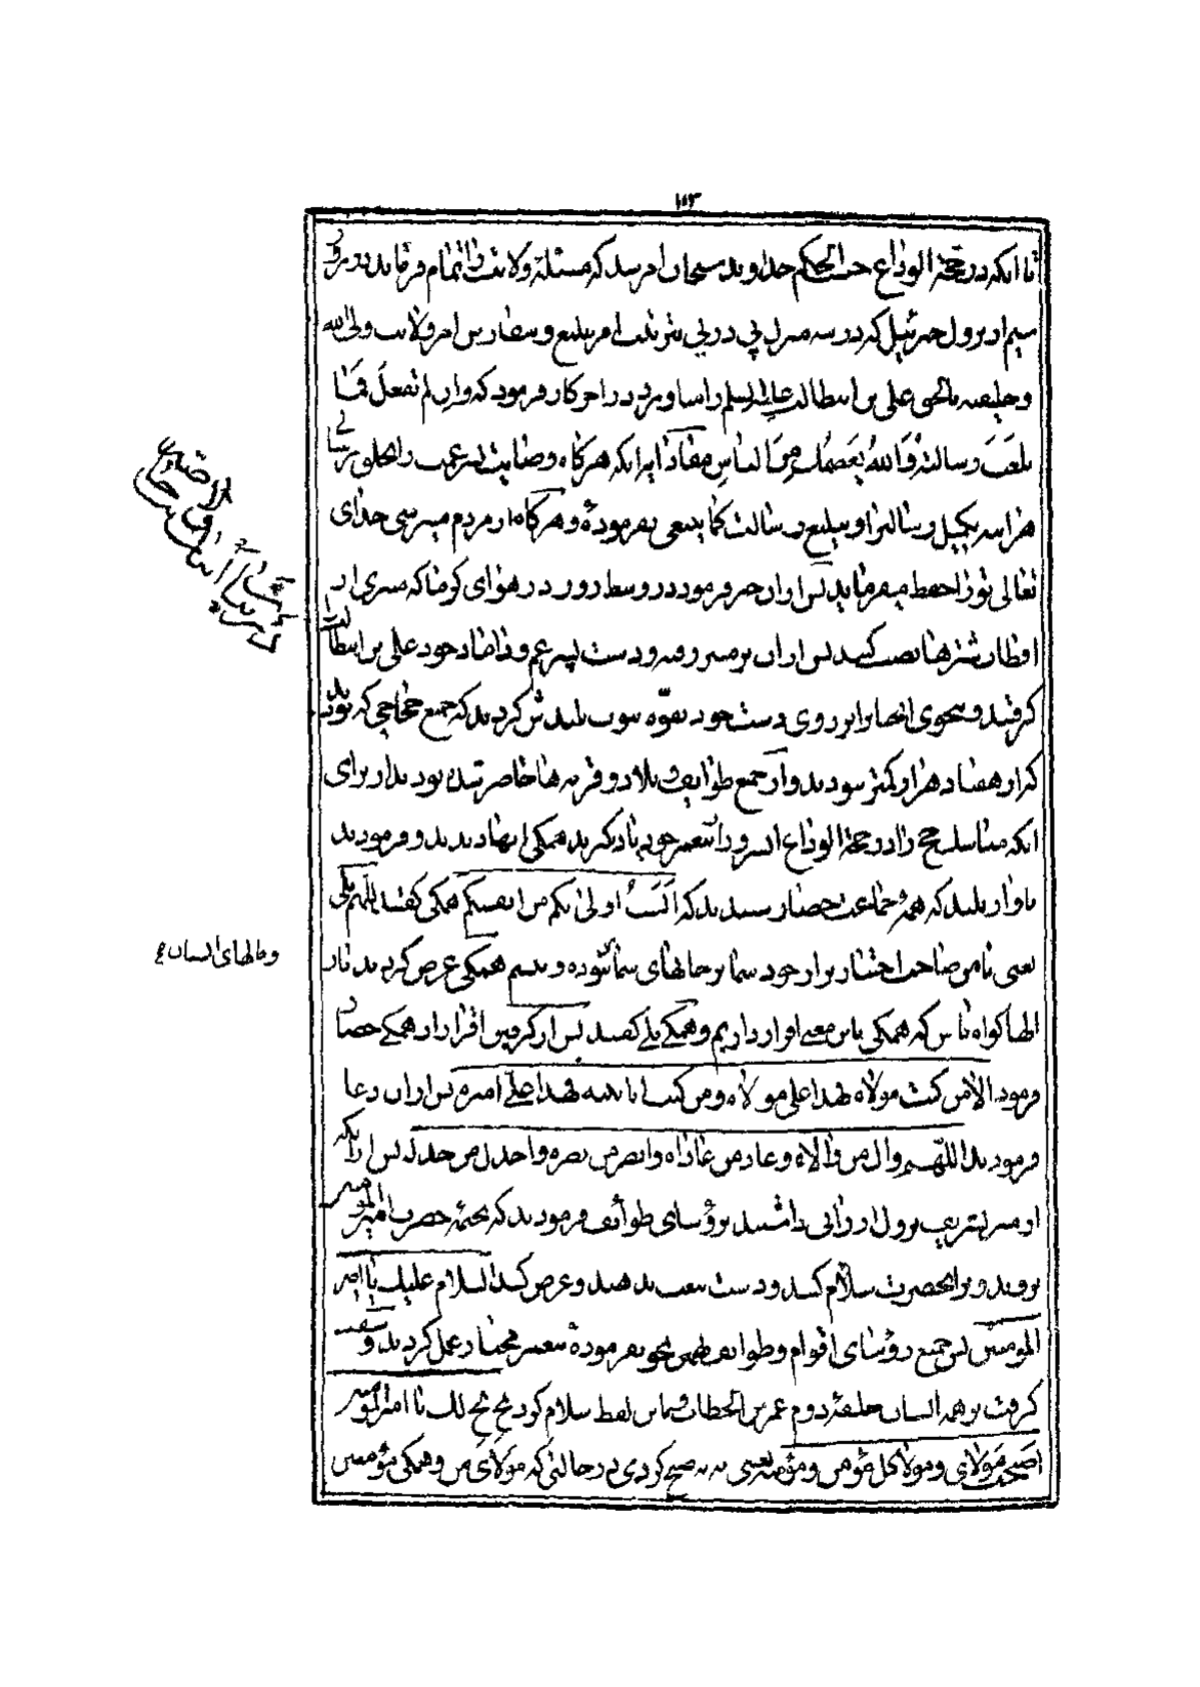 ١٥٣
تا آنکه در حجة الوداع حسب الحکم خداوند سبحان امر رسد که مسئله ولایت را تمام فرماید در مرتبه
سیم از نزول جبرئیل که در سه منزل پی در پی شرف امر تبلیغ و سفارش امر ولایت ولی الله
و خلیفه بالحق علی بن ابیطالب علیه السلم را میاورد در آخر کار فرمود که وان لم تفعل فما
بلغت رسالته والله یعصمک من الناس مفاد ایه اینکه هرگاه وصایت پسر عمت را بخلق نرسانی
هرآینه تکمیل رسالت او و تبلیغ رسالت کما ینبغی نفرموده و هرگاه از مردم میترسی خدای
تعالی تو را حفظ میفرماید پس از آن حضر فرمود در وسط روز در هوای گرما که منبری از
اقطاب شترها نصب کنید پس از آن بر منبر رفته و دست پسر عم و داماد خود علی بن ابیطالب
گرفتند و بنحوی انها را بر روی دست خود بقوه نبوت بلندش کردند که جمیع حجاجی که بودند
که از هفتاد هزار کمتر نبودند و از جمیع طوایف و بلاد و قریه ها حاضر شده بودند از برای
اینکه مناسک حج را در حجة الوداع انسرور از پیغمبر خود یاد گیرند همگی ایشان دیدند و فرمودند
باواز بلند که همه جماعت حضار رسیدند که الست اولی بکم من انفسکم همگی گفتند اللهم بلی
یعنی ایا من صاحب اختیارتر از خود شما بر جانهای شما نبوده و نیستم همگی عرض کردند بار
الها گواه باش که همگی باین معنی اقرار داریم و همگی بلی گفتند پس از گرفتن اقرار از همگی حضار
فرمود الا من کنت مولاه فهذا علی مولاه و من کنت انا نبیه فهذا علی امیره پس از آن دعا
فرمودند اللهم وال من والاه و عاد من عاداه وانصر من نصره واخذل من خذله پس از آنکه
از منبر تشریف نزول ارزانی داشتند برؤسای طوائف فرمودند که بخیمه حضرت امیر المؤمنین
بروند و بر انحضرت سلام کنند و دست بیعت بدهند و عرض کنند السلام علیک یا امیر
المؤمنین پس جمیع رؤسای اقوام و طوایف بهمین نحو بفرموده پیغمبر مختار عمل کردند و سبقت
گرفت بر همه ایشان خلیفه دوم عمر بن الخطاب و باین لفظ سلام کرد بخ بخ لک یا امیر المؤمنین
اصبحت مولای و مولا کل مؤمن و مؤمنه یعنی به به صبح کردی در حالتی که مولای من و همگی مؤمنین
و مالهای ایشان